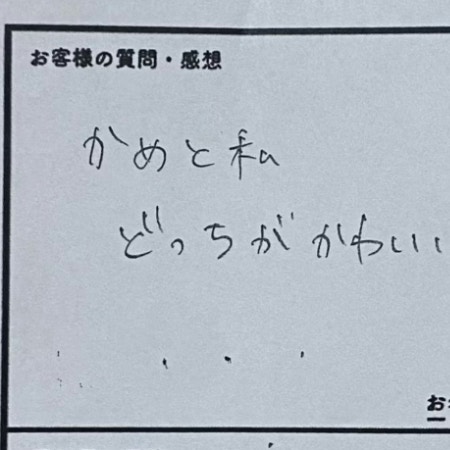 お客様の質問・感想
かめと私
どっちがかわいい
お